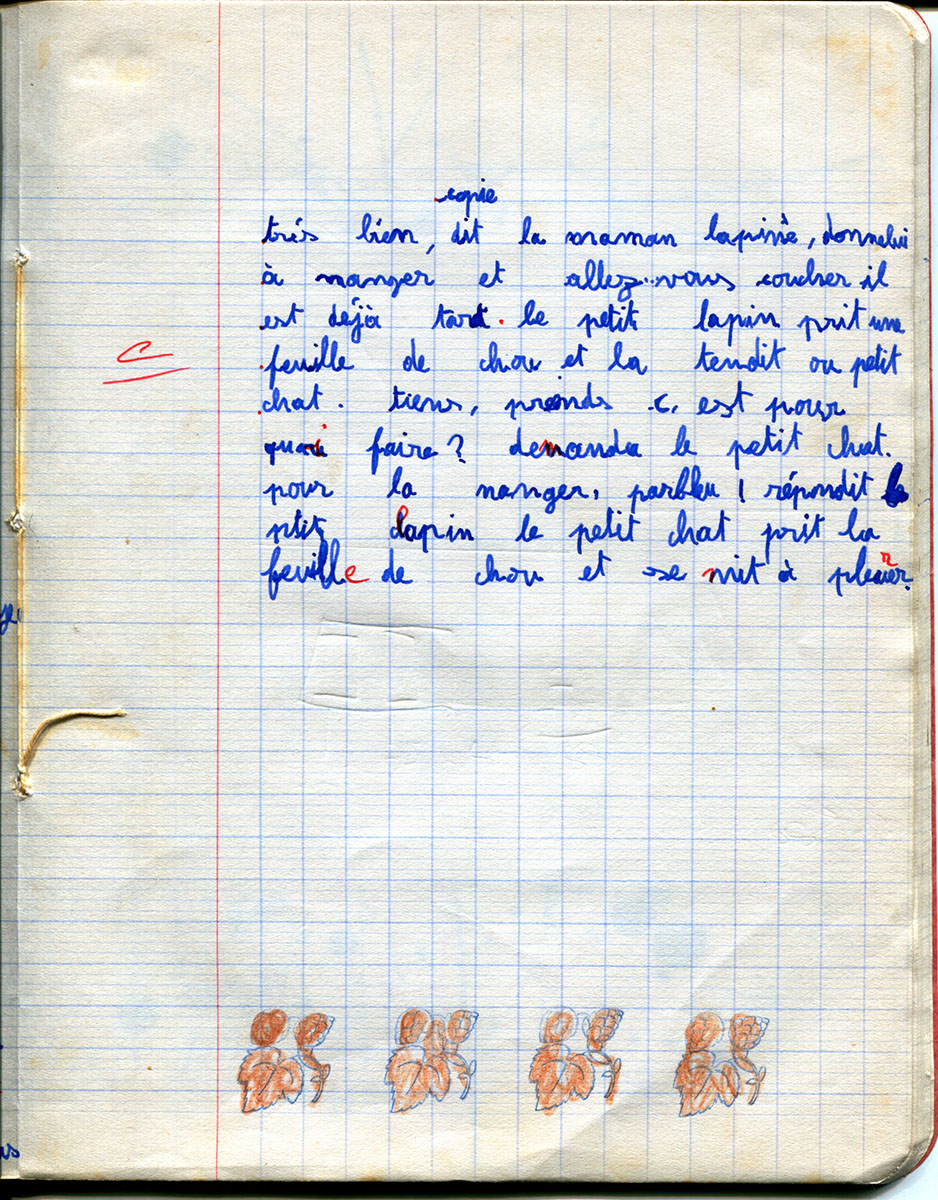 copie
trés bien, dit la maman lapine, donnelui
à manger et allez-vous coucher il
est déjà tard. le petit lapin prit une
feuille de chou et la tendit ou petit
chat. tiens, prends c, est pour
C
quoi faire? demanda le petit chat.
pour la manger, parbleu! répondit le
ptit lapin le petit chat prit la
feuille de chou et se mit à pleurer.